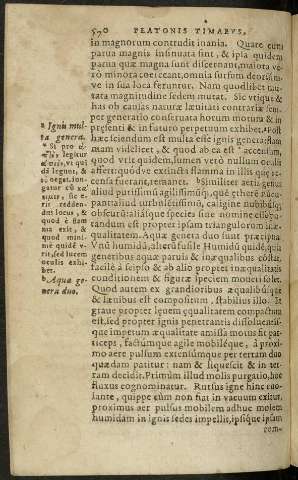 570 PLATONIS TIMAEVS,
in magnorum contrudit inania. Quare cum
parua magnis insinuata sint, & ipsa quidem
parua quæ magna sunt discernant, maiora ve-
rò minora coërceant, omnia sursum deorsúm-
ve in sua loca feruntur. Nam quodlibet tau-
tata magnitudine sedem mutat. Sic vtique &
has ob causas naturæ læuitati contrariæ sem-
per generatio conseruata horum motum & in
præsenti & in futuro perpetuum exhibet. Post
hæc sciendum est multa esse ignis genera: flam-
mam videlicet, & quod ab ea est accensum,
quod vrit quidem, lumen verò nullum oculis
affert: quódve extincta flamma in illis quæ ac-
censa fuerant, remanet. Similiter aëris genus
aliud purissimū agilissimúq;, quē æthere nūcu-
pant: aliud turbulētissimū, caligine nubibusq;
obscurū: aliasque species sine nomine esse
randum est propter ipsam triangulorum inæ-
qualitatem. Aquæ genera duo sunt præcipua.
Vnū humidū, alterū fusile. Humidū quidē, quia
generibus aquæ paruis & inæqualibus cōstat,
facilè à seipso & ab alio propter inæqualitatis
conditionem & figuræ speciem moueri solet.
Quod autem ex grandioribus æqualibúsque
& læuibus est compositum, stabilius illo. Et
graue propter leuem æqualitatem compactum
est, sed propter ignis penetrantis dissoluentis-
que impetum æqualitate amissa motus fit par-
ticeps, factúmque agile mobiléque, à proxi-
mo aëre pulsum extensúmque per terram duo
quædam patitur: nam & liquescit & in ter-
ram decidit. Primùm illud molis purgatio, hoc
fluxus cognominatur. Rursus igne hinc euo-
lante, quippe cùm non fiat in vacuum exitus,
proximus aër pulsus mobilem adhuc molem
humidam in ignis sedes impellit, ipsíque ipsam
com-
a Ignis mul-
ta genera.
* Si pro
legitur
vt qui-
dā legunt, &
nō negat. Ion-
gatur cū
sic e-
rit redden-
dus locus, &
quod è flam
ma exit, &
quod mini-
mè quidē v-
rit, sed lucem
oculis exhi-
bet.
b Aquæ ge-
nera duo.